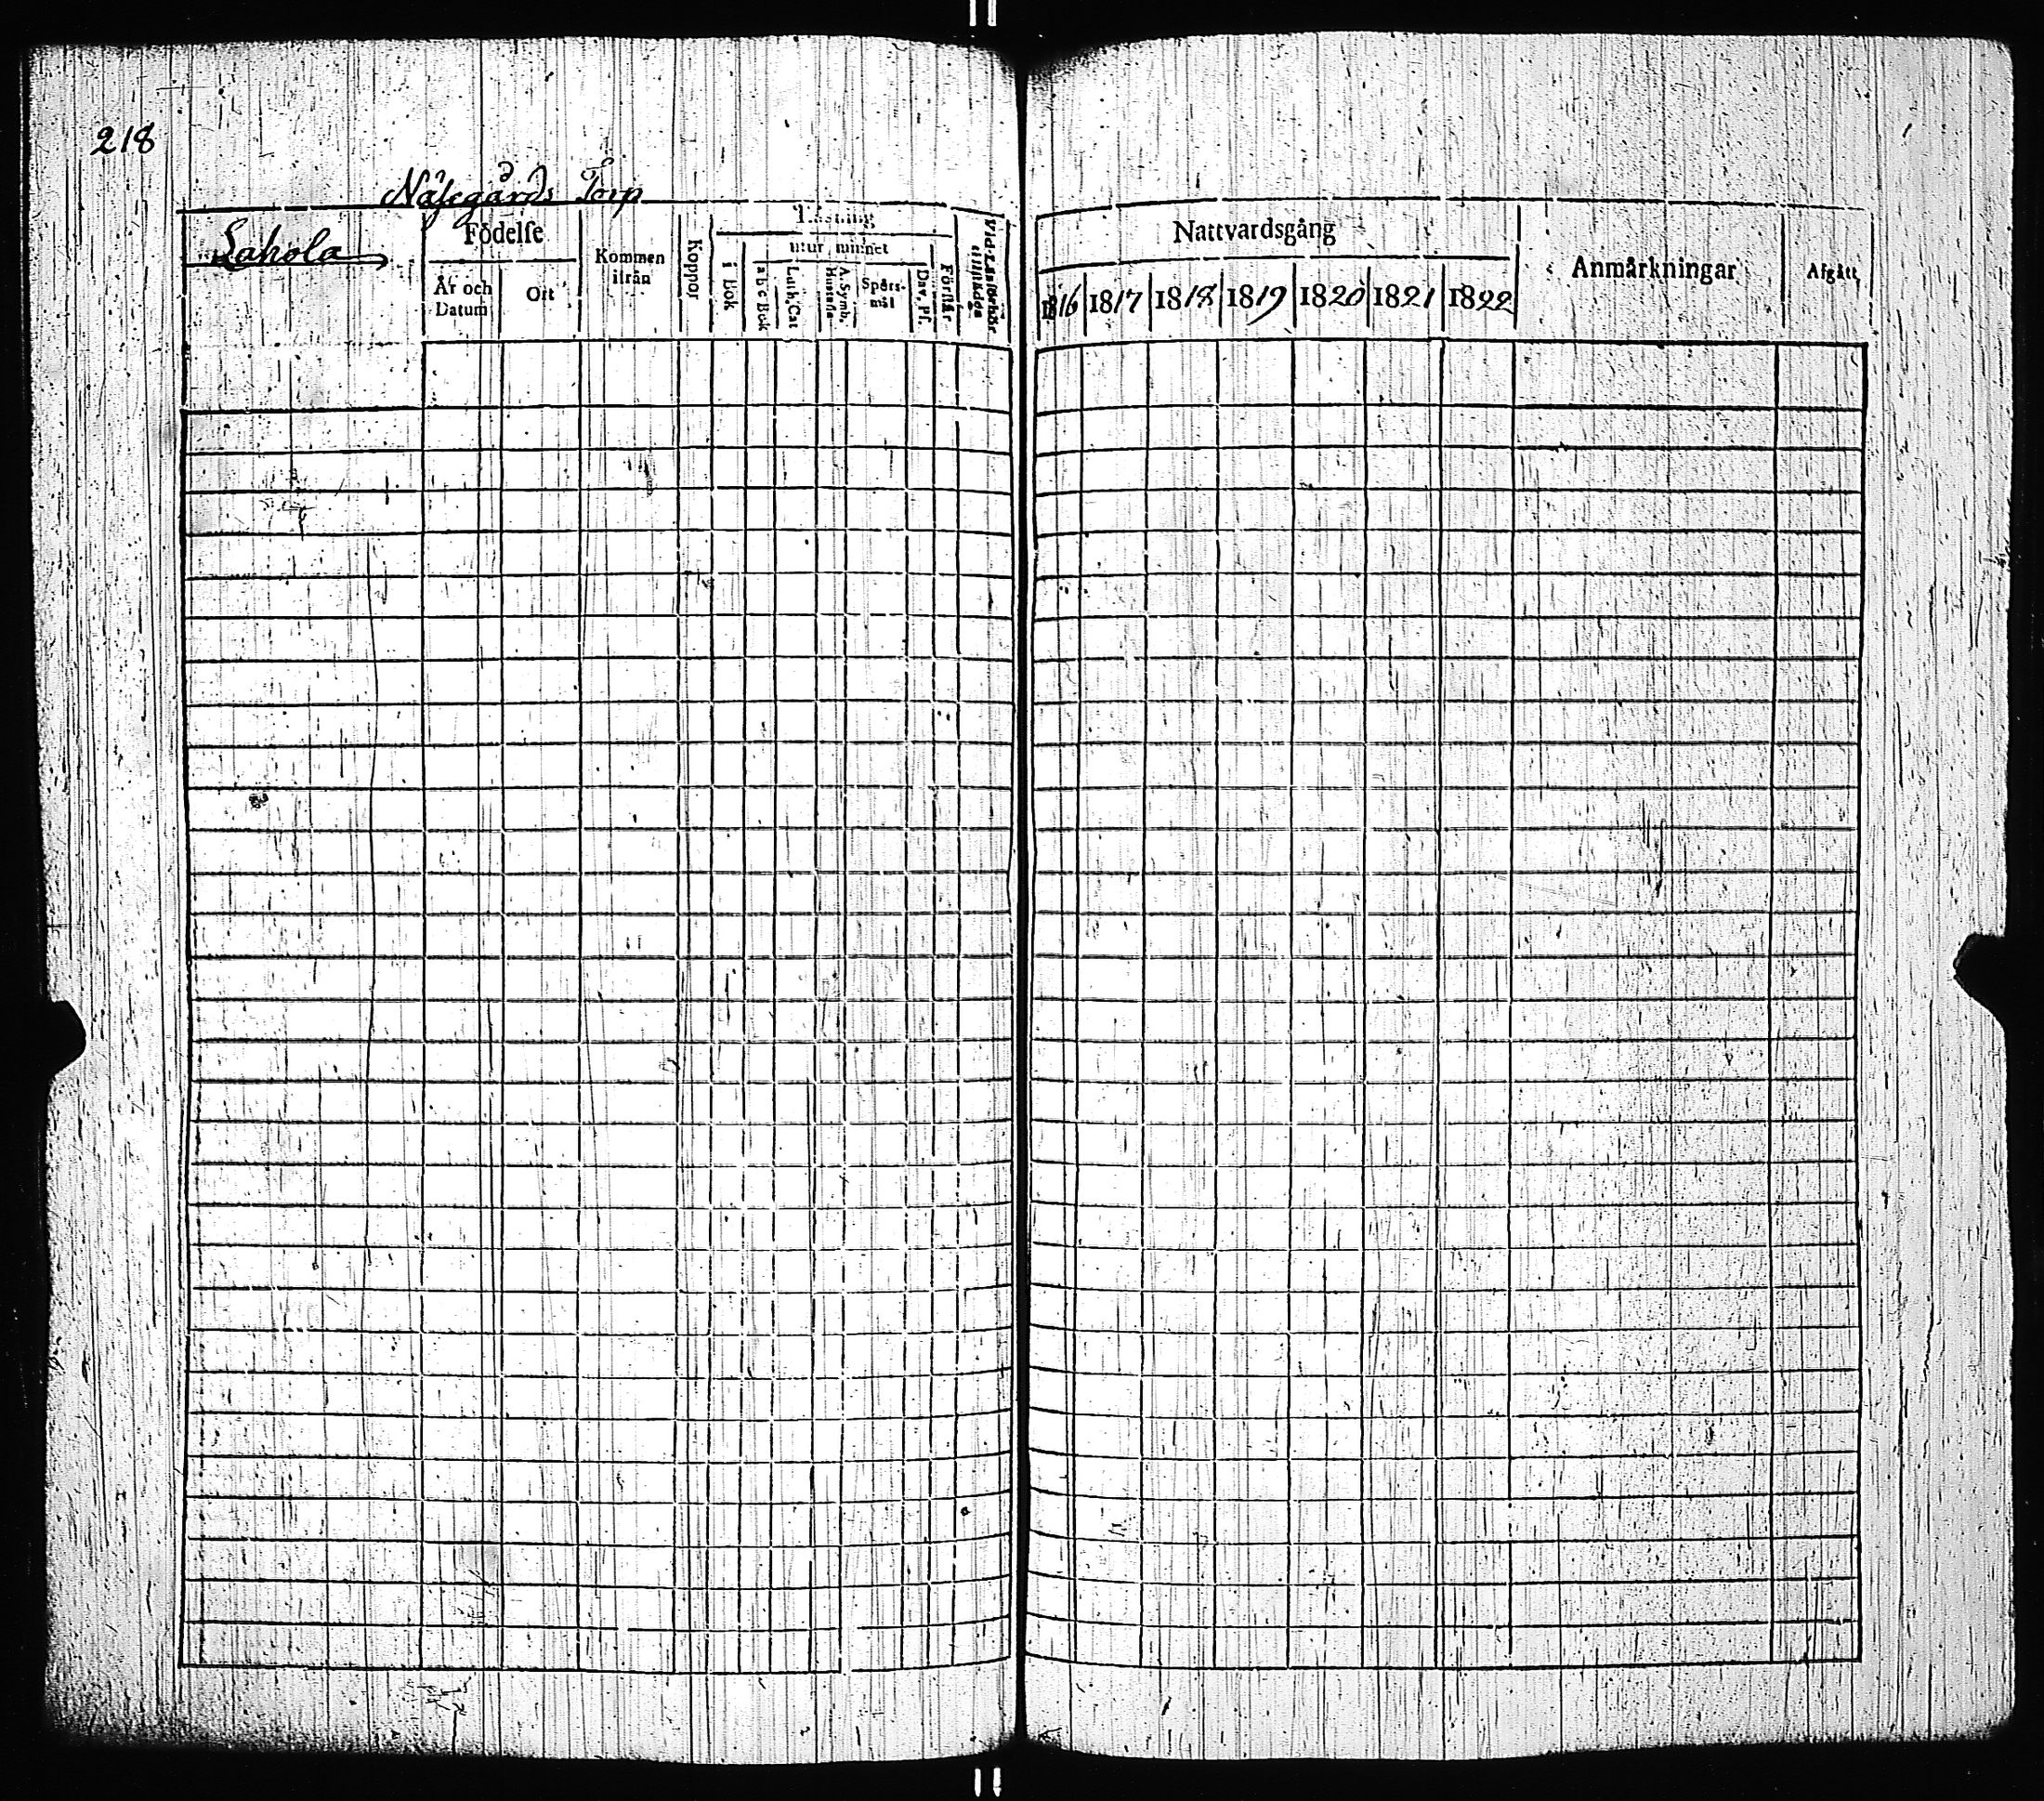 218
Näsegårds Torp
Lahola
Födelse
År och Datum
Ort
Kommen ifrån
Koppor
Läsning
utur minnet
i Bok
a b c Bok
Luth. Cat
A. Symb. Hustafla
Spörs-mål
Dav. Ps.
Förstår
Nattvardsgång
1816 1817 1818 1819 1820 1821 1822
Anmärkningar
Afgått